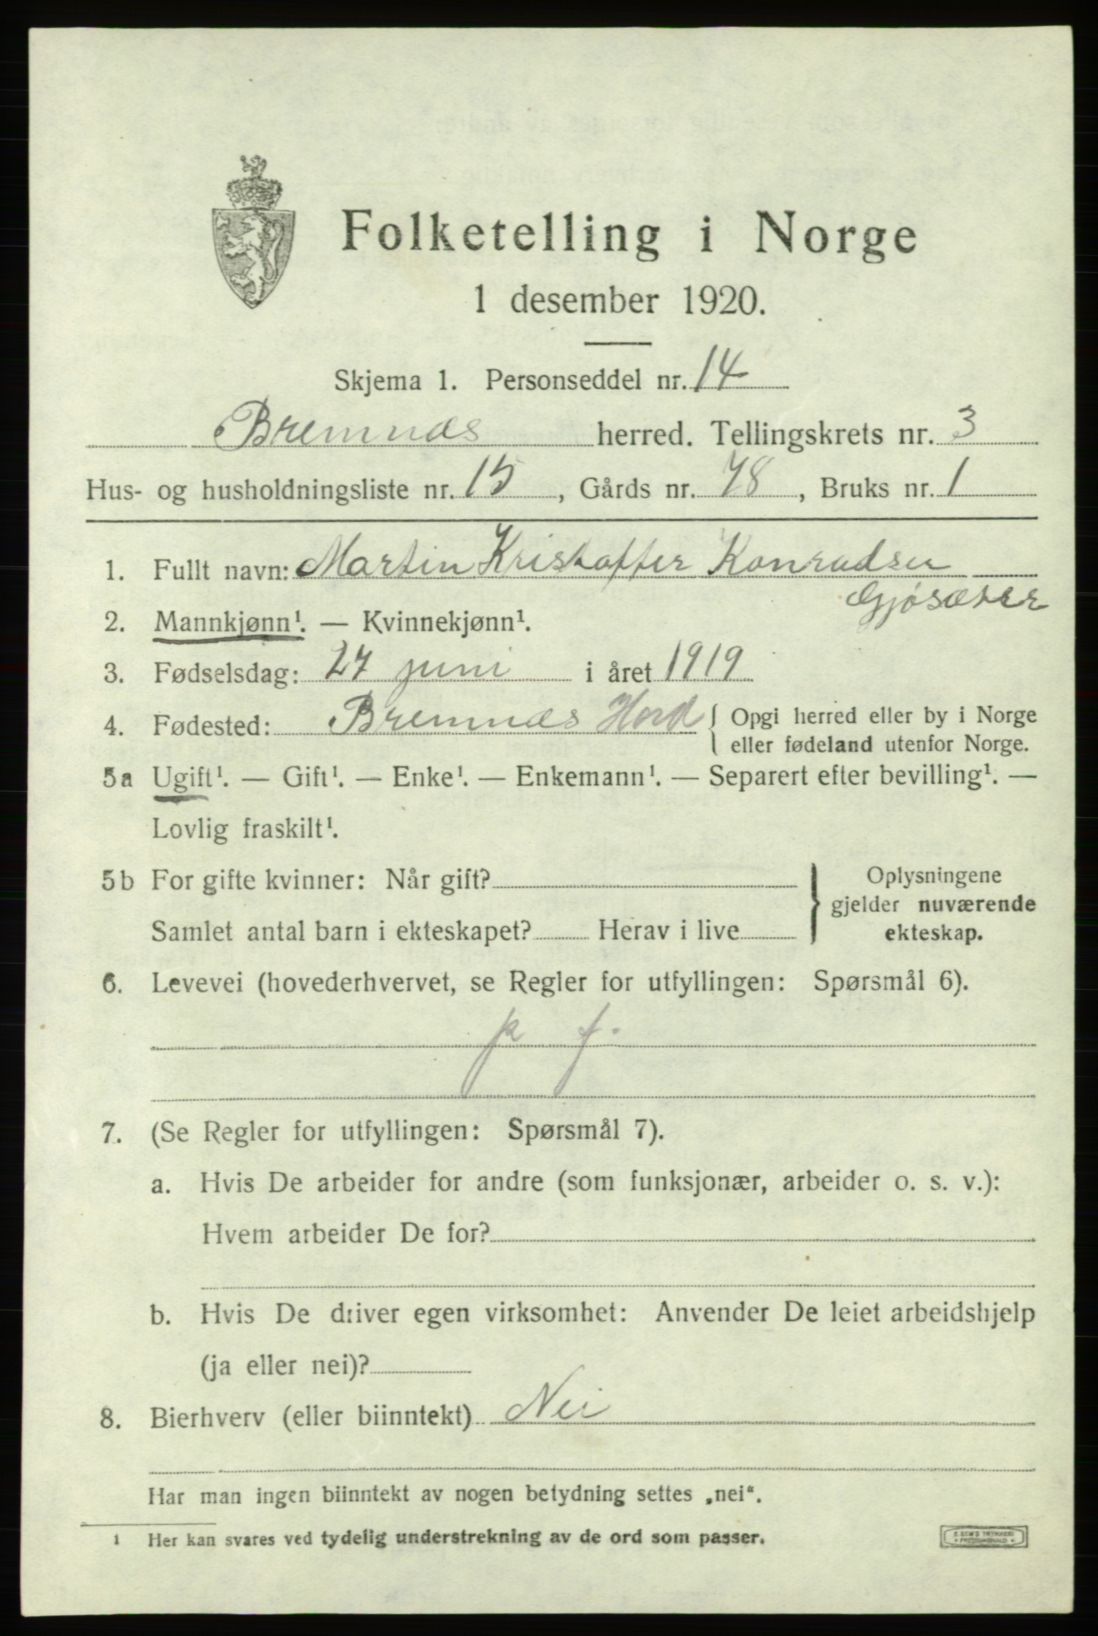 Folketelling i Norge
1 desember 1920.
Skjema 1. Personseddel nr. 14
Bremnæs herred. Tellingskrets nr. 3
Hus- og husholdningsliste nr. 15, Gårds nr. 78, Bruks nr. 1
1. Fullt navn: Martin Kristoffer Konradsen
Gjøsæter
2. Mannkjønn¹. — Kvinnekjønn¹.
3. Fødselsdag: 27 juni i året 1919
4. Fødested: Bremnæs Hord { Opgi herred eller by i Norge
eller fødeland utenfor Norge.
5a Ugift¹. — Gift¹. — Enke¹. — Enkemann¹. — Separert efter bevilling¹. —
Lovlig fraskilt¹.
5b For gifte kvinner: Når gift? } Oplysningene
gjelder nuværende
Samlet antal barn i ekteskapet? Herav i live ekteskap.
6. Levevei (hovederhvervet, se Regler for utfyllingen: Spørsmål 6).
p f.
7. (Se Regler for utfyllingen: Spørsmål 7).
a. Hvis De arbeider for andre (som funksjonær, arbeider o. s. v.):
Hvem arbeider De for?
b. Hvis De driver egen virksomhet: Anvender De leiet arbeidshjelp
(ja eller nei)?
8. Bierhverv (eller biinntekt) Nei
Har man ingen biinntekt av nogen betydning settes „nei“.
¹ Her kan svares ved tydelig understrekning av de ord som passer.